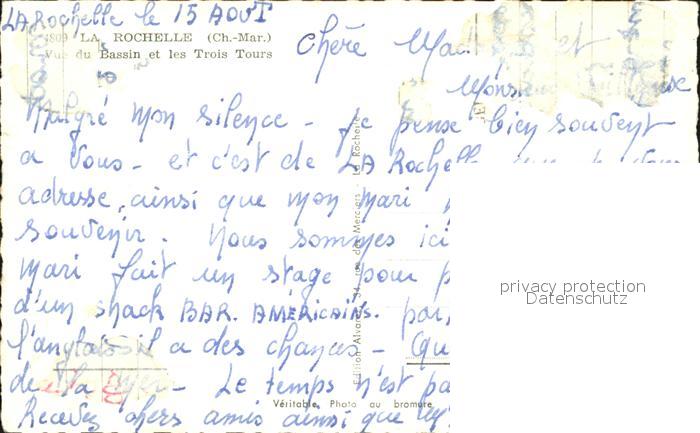 LA Rochelle le 15 AOUT
4809 LA ROCHELLE (Ch.-Mar.)
Vue du Bassin et les Trois Tours
Chère et
Monsieur
Malgré mon silence - je pense bien souvent
a vous - et c'est de LA Rochelle
adresse, ainsi que mon mari
souvenir. Nous sommes ici
mari fait un stage pour
d'un snack BAR. AMÉRICAINS.
l'anglais il a des chances -
de la mer - Le temps n'est
Recevez chers amis ainsi que
Edition Alvarez, 34, rue des Merciers - La Rochelle
Véritable Photo au bromure
privacy protection
Datenschutz